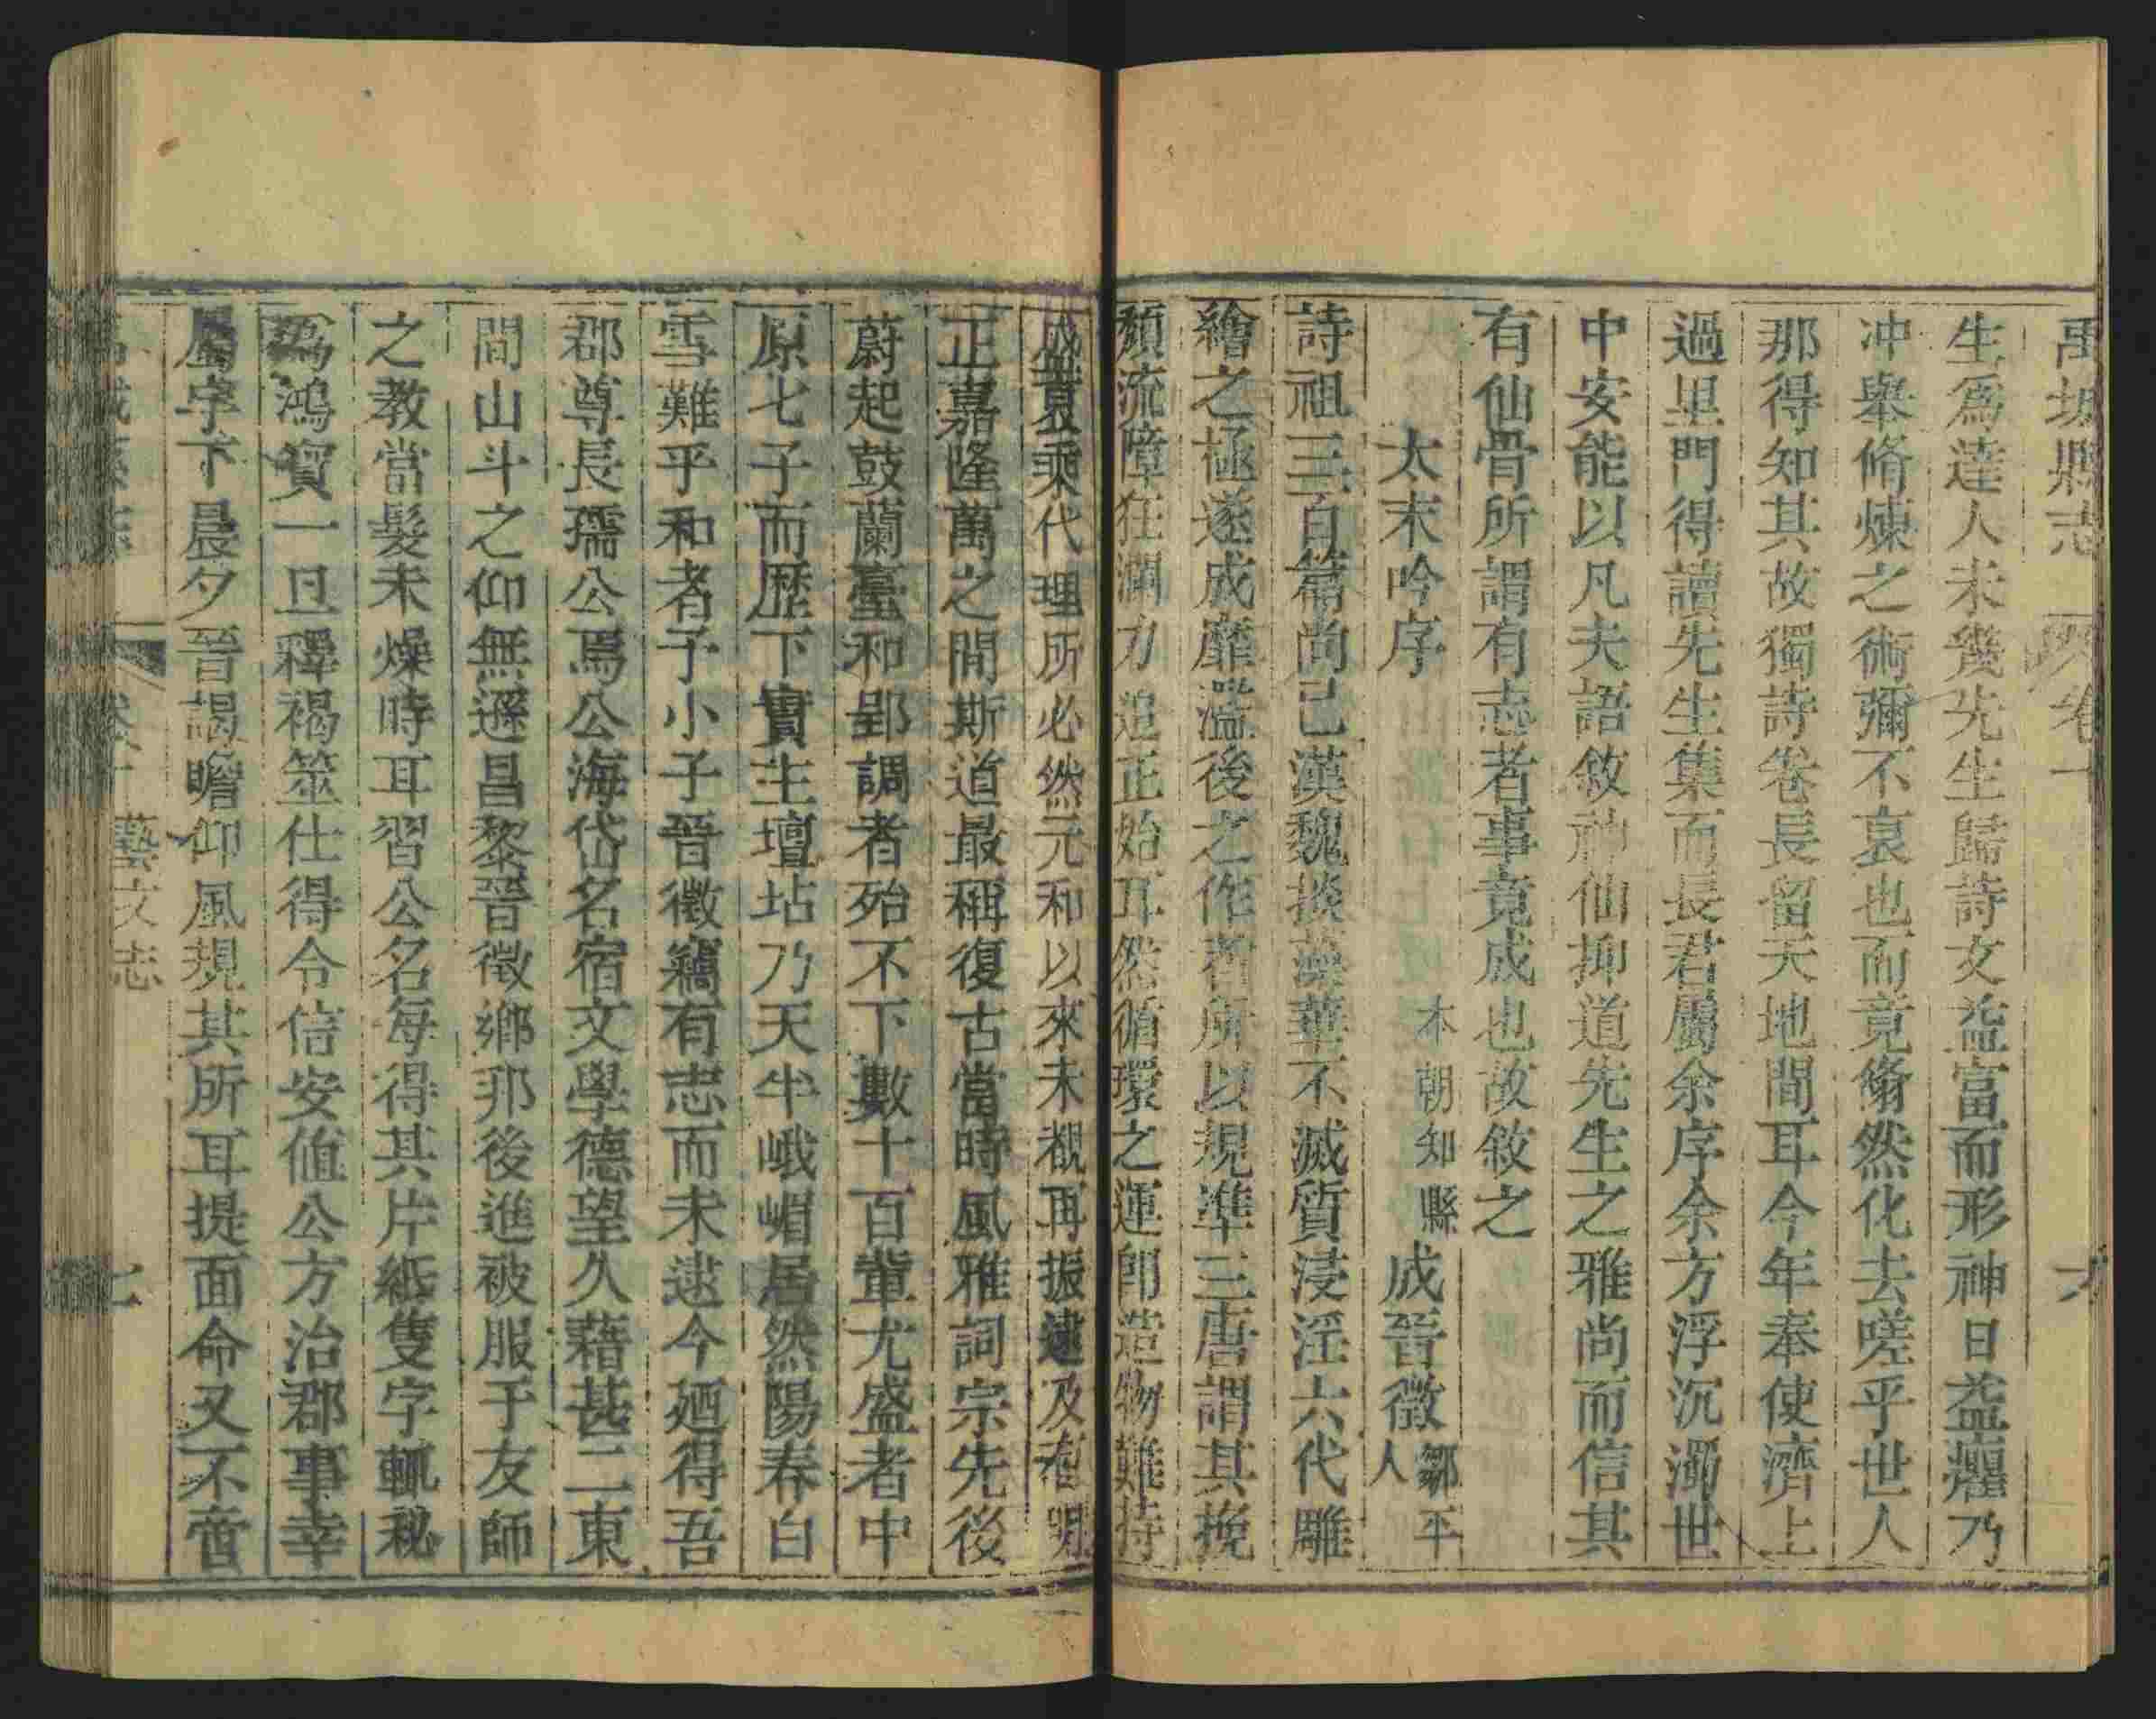 禹城縣志 卷十 六
生爲達人未幾先生歸詩文益富而形神日益癯乃
冲舉脩煉之術彌不衰也而竟翛然化去嗟乎世人
那得知其故獨詩卷長留天地間耳今年奉使濟上
過里門得讀先生集而長君屬余序余方浮沉濁世
中安能以凡夫語敘神仙抑道先生之雅尚而信其
有仙骨所謂有志者事竟成也故敘之
太末吟序 本朝知縣 成晉徵 鄒平人
詩祖三百篇尚已漢魏掞藻華不滅質浸淫六代雕
繪之極遂成靡濫後之作者所以規準三唐謂其挽
頹流障狂瀾力追正始耳然循環之運卽造物難持
盛衰乘代理所必然元和以來未覩再振逮及有明
正嘉隆萬之間斯道最稱復古當時風雅詞宗先後
蔚起鼓蘭臺和郢調者殆不下數十百輩尤盛者中
原七子而歷下實主壇坫乃天半峨嵋居然陽春白
雪難乎和者予小子晉徵竊有志而未逮今廼得吾
郡尊長孺公焉公海岱名宿文學德望久藉甚二東
間山斗之仰無遜昌黎晉徵鄉那後進被服于友師
之教當髮未燥時耳習公名每得其片紙隻字輒秘
爲鴻寶一旦釋褐筮仕得令信安值公方治郡事幸
屬字下晨夕晉謁瞻仰風規其所耳提面命又不啻
卷十 藝文志 七